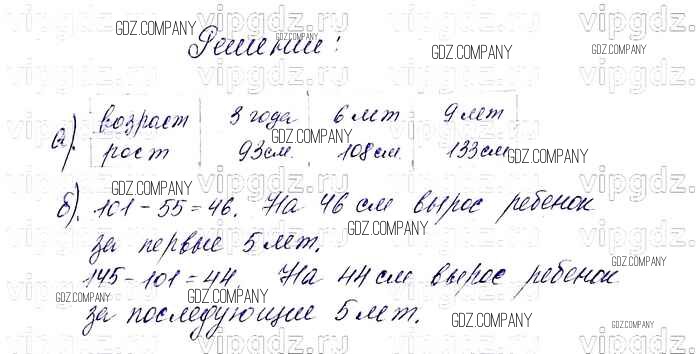 Решение:
а). возраст 3 года 6 лет 9 лет
рост 93 см. 108 см. 133 см
б). 101 - 55 = 46. На 46 см вырос ребенок
за первые 5 лет.
145 - 101 = 44. На 44 см вырос ребенок
за последующие 5 лет.
vipgdz.ru
GDZ.COMPANY